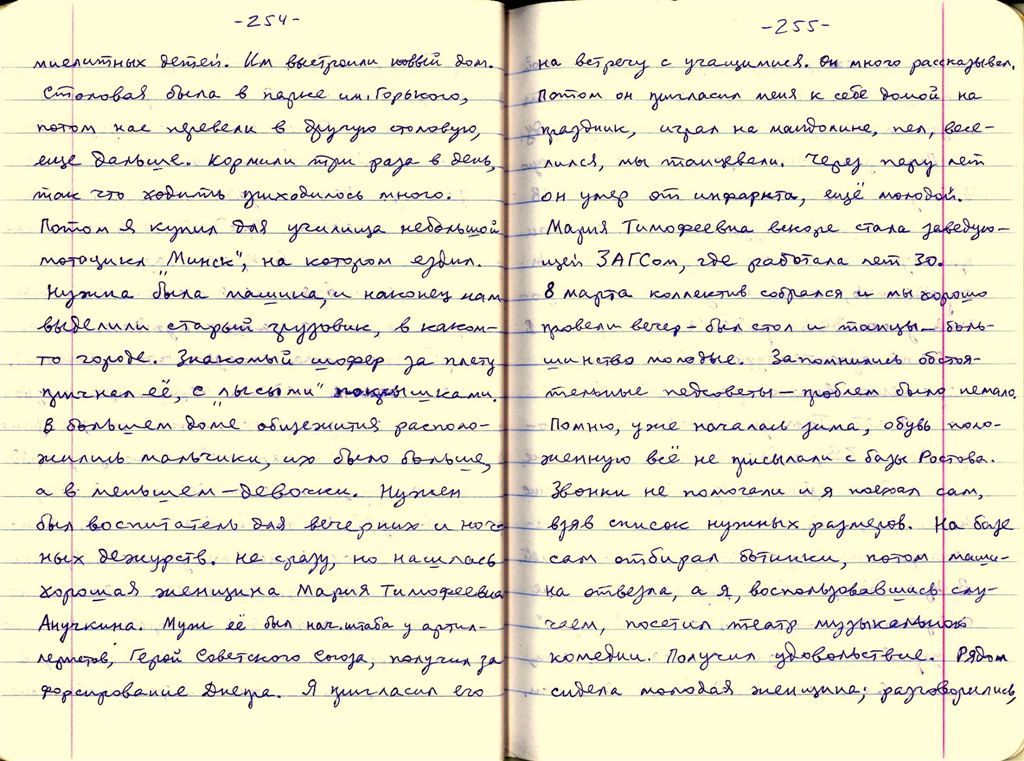 -254-
миелитных детей. Им выстроили новый дом.
Столовая была в парке им. Горького,
потом нас перевели в другую столовую,
еще дальше. Кормили три раза в день,
так что ходить приходилось много.
Потом я купил для училища небольшой
мотоцикл "Минск", на котором ездил.
Нужна была машина, и наконец нам
выделили старый грузовик, в каком-
то городе. Знакомый шофер за плату
пригнал её, с "лысыми" покрышками.
В большем доме общежития располо-
жились мальчики, их было больше,
а в меньшем – девочки. Нужен
был воспитатель для вечерних и ноч-
ных дежурств. Не сразу, но нашлась
хорошая женщина Мария Тимофеевна
Анучкина. Муж её был нач. штаба у артил-
леристов, Герой Советского Союза, получил за
форсирование Днепра. Я пригласил его
-255-
на встречу с учащимися. Он много рассказывал.
Потом он пригласил меня к себе домой на
праздник, играл на мандолине, пел, весе-
лился, мы танцевали. Через пару лет
он умер от инфаркта, ещё молодой.
Мария Тимофеевна вскоре стала заведую-
щей ЗАГСом, где работала лет 30.
8 марта коллектив собрался и мы хорошо
провели вечер – был стол и танцы – боль-
шинство молодые. Запомнились обстоя-
тельные педсоветы – проблем было немало.
Помню, уже началась зима, обувь поло-
женную всё не присылали с базы Ростова.
Звонки не помогали и я поехал сам,
взяв список нужных размеров. На базе
сам отбирал ботинки, потом маши-
на отвезла, а я, воспользовавшись слу-
чаем, посетил театр музыкальной
комедии. Получил удовольствие. Рядом
сидела молодая женщина; разговорились,